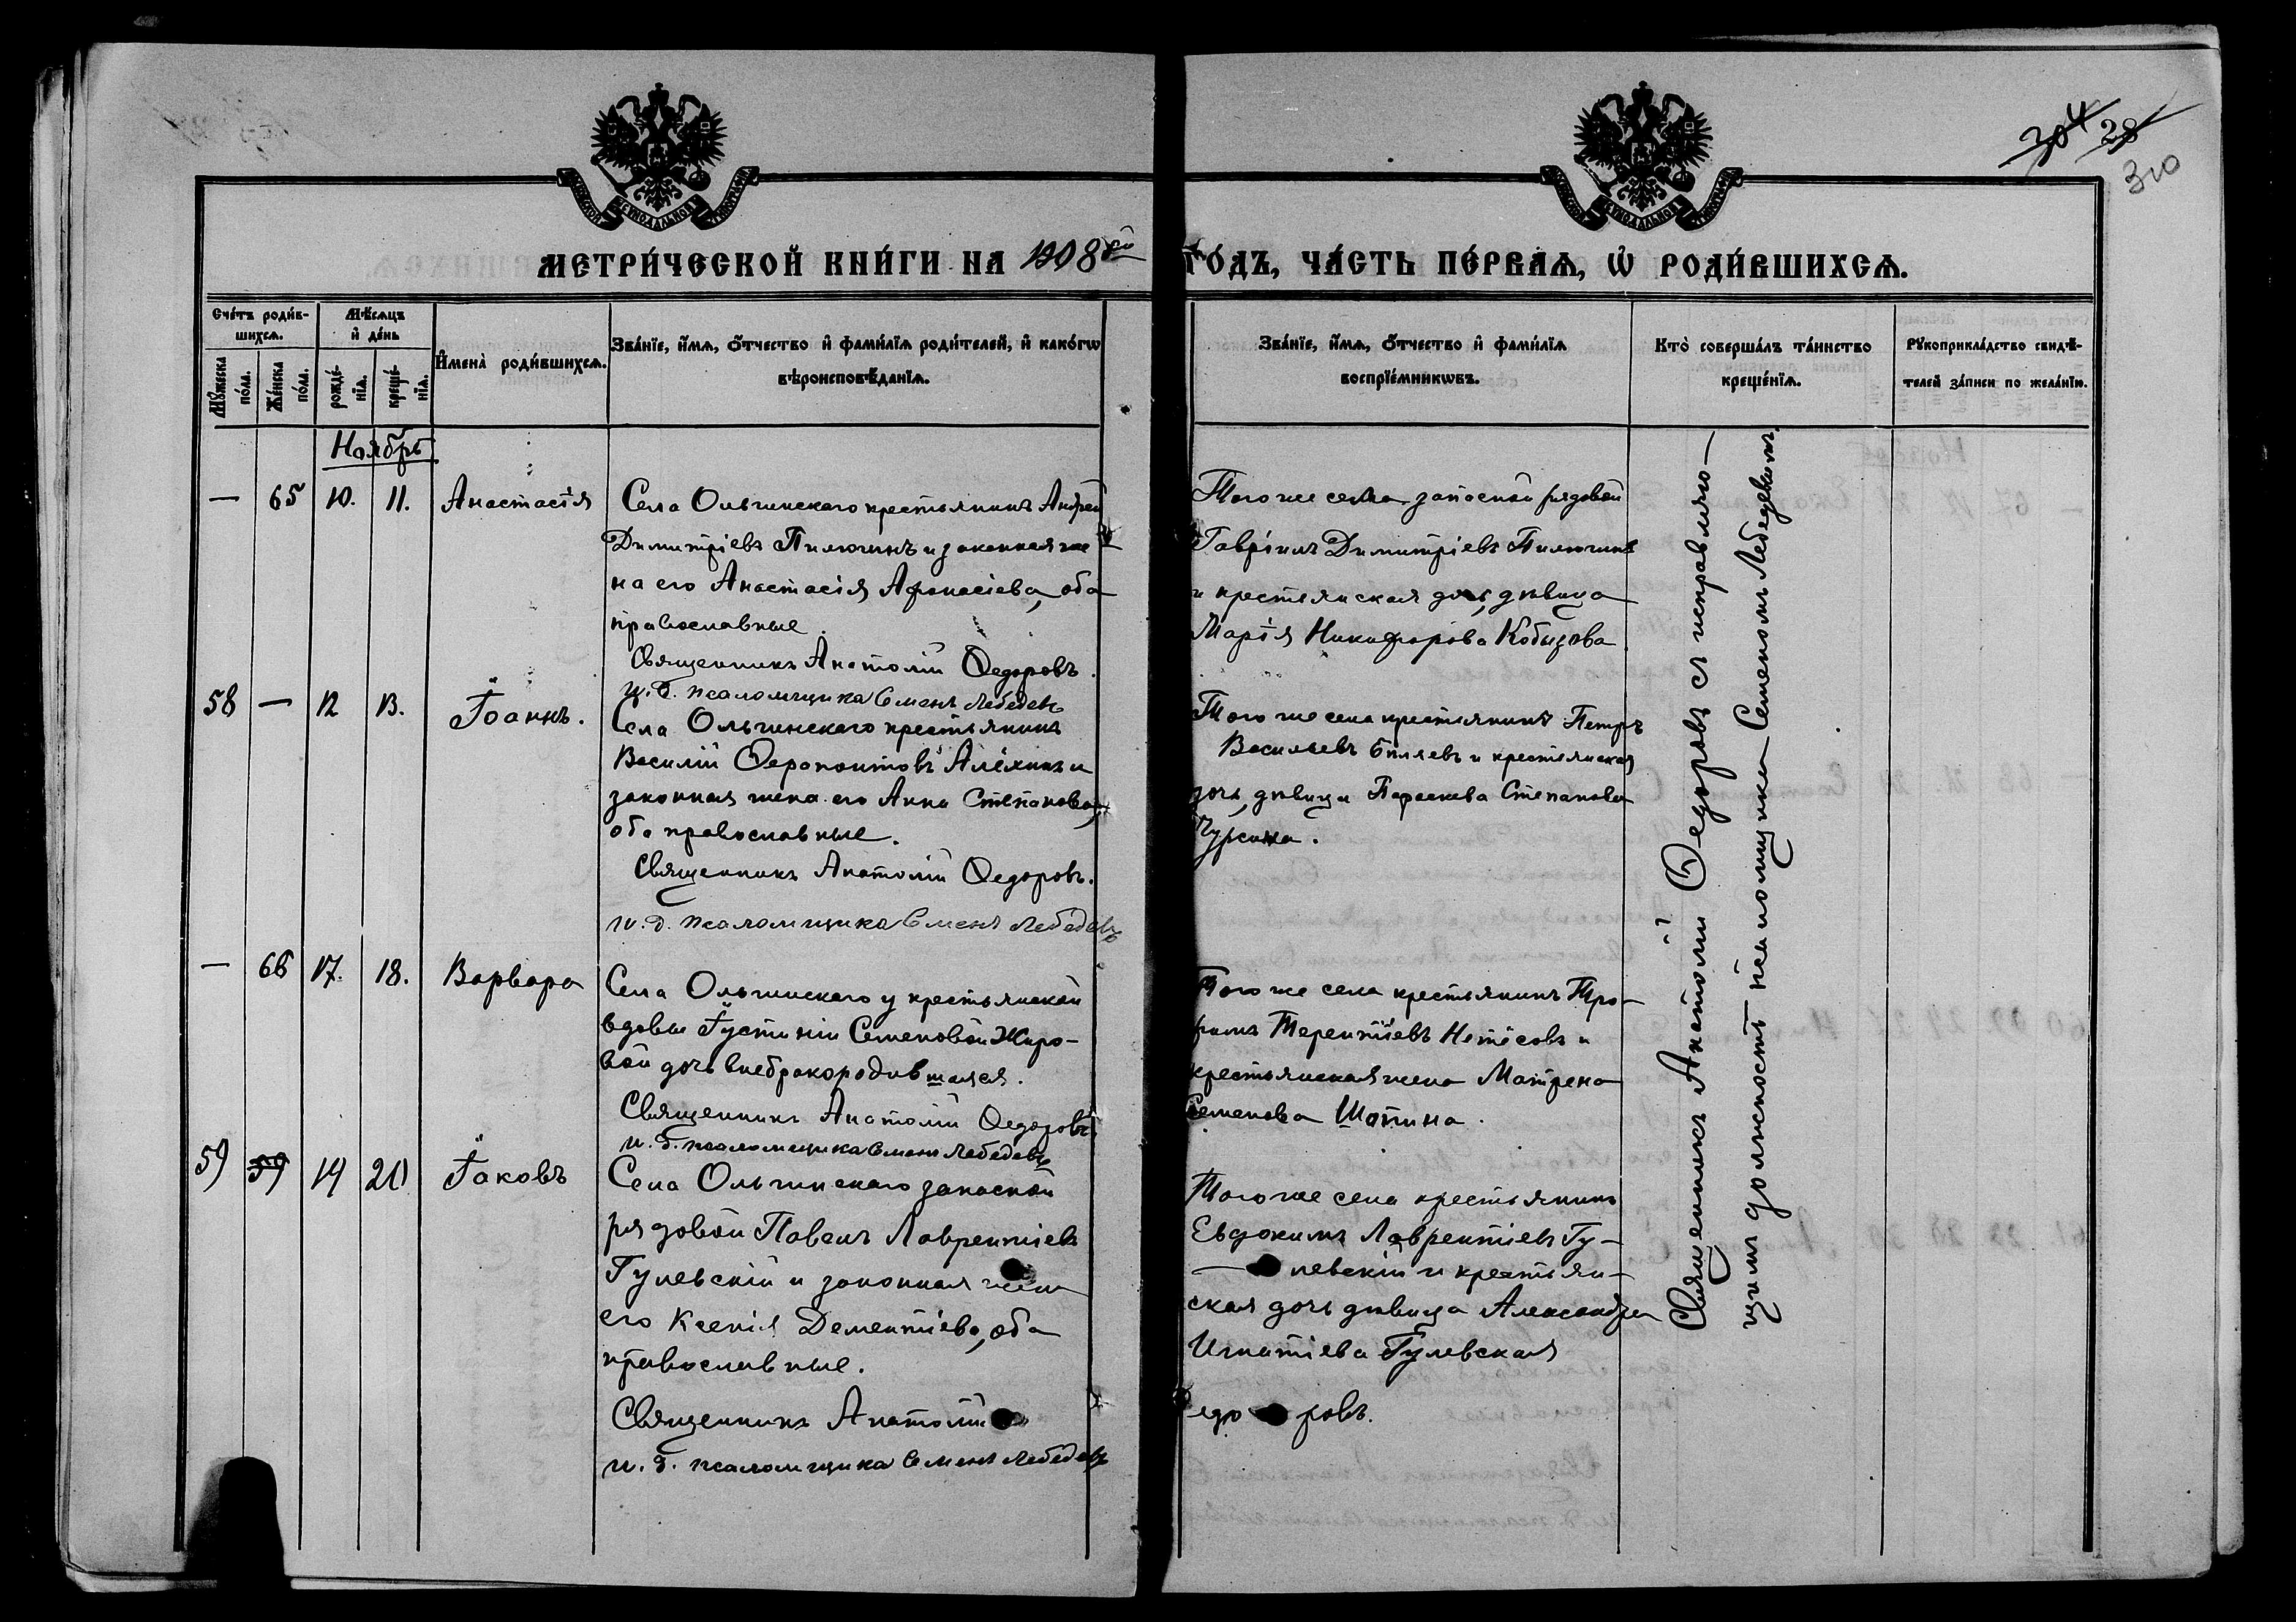 304 28
310
МЕТРИ́ЧЕСКОЙ КНИ́ГИ НА 1908ой
ГО́ДЪ, ЧА́СТЬ ПЕ́РВАѦ, Ѡ҆ РОДИ́ВШИХСѦ.
Сче́тъ роди́в-
шихсѧ.
Мѣ́сѧцъ
и҆ де́нь
Мꙋ́жеска
по́ла.
Же́нска
по́ла.
рожде́-
нїѧ.
креще́-
нїѧ.
И҆мена̀ роди́вшихсѧ.
Зва́нїе, и҆́мѧ, ѻ҆́тчество и҆ фами́лїѧ роди́телей, и҆ како́гѡ
вѣроисповѣ́данїѧ.
Зва́нїе, и҆́мѧ, ѻ҆́тчество и҆ фами́лїѧ
воспрїе́мникѡвъ.
Кто̀ соверша́лъ та́инство
креще́нїѧ.
Рꙋкоприкла́дство свидѣ́-
телей за́писи по жела́нїю.
Ноябрь
— 65 10. 11. Анастасія
Села Ольгинскаго крестьянинъ Андрей
Димитріевъ Пилюгинъ и законная же
на его Анастасія Афанасіева, оба
православные.
Священникъ Анатолій Ѳедоровъ.
и. д. псаломщика Семенъ Лебедевъ
Того же села запасной рядовой
Гавріилъ Димитріевъ Пилюгинъ
и крестьянская дочь, дѣвица
Марія Никифорова Кобызова
58 — 12 13. Іоаннъ.
Села Ольгинскаго крестьянинъ
Василій Ѳерапонтовъ Алёхинъ и
законная жена его Анна Степанова,
оба православные.
Священникъ Анатолій Ѳедоровъ.
и. д. псаломщика Семенъ Лебедевъ
Того же села крестьянинъ Петръ
Васильевъ Бѣляевъ и крестьянская
дочь, дѣвица Параскева Степанова
Чурсина.
— 66 17. 18. Варвара
Села Ольгинскаго у крестьянской
вдовы Іустиніи Семеновой Жиро-
вой дочь внебракородившаяся.
Священникъ Анатолій Ѳедоровъ
и. д. псаломщика Семенъ Лебедевъ
Того же села крестьянинъ Тро-
фимъ Терентіевъ Нетёсовъ и
крестьянская жена Матрена
Семенова Шатина.
59 59 19 20 Іаковъ
Села Ольгинскаго запасной
рядовой Павелъ Лаврентіевъ
Гулевскій и законная жена
его Ксенія Дементіева, оба
православные.
Священникъ Анатолій Ѳ
едоровъ.
и. д. псаломщика Семенъ Лебедевъ
Того же села крестьянинъ
Евдокимъ Лаврентіевъ Гу-
— левскій и крестьян-
ская дочь дѣвица Александра
Игнатіева Гулевская
Священникъ Анатолій Ѳедоровъ съ исправляю-
щимъ должность псаломщика Семеномъ Лебедевымъ.